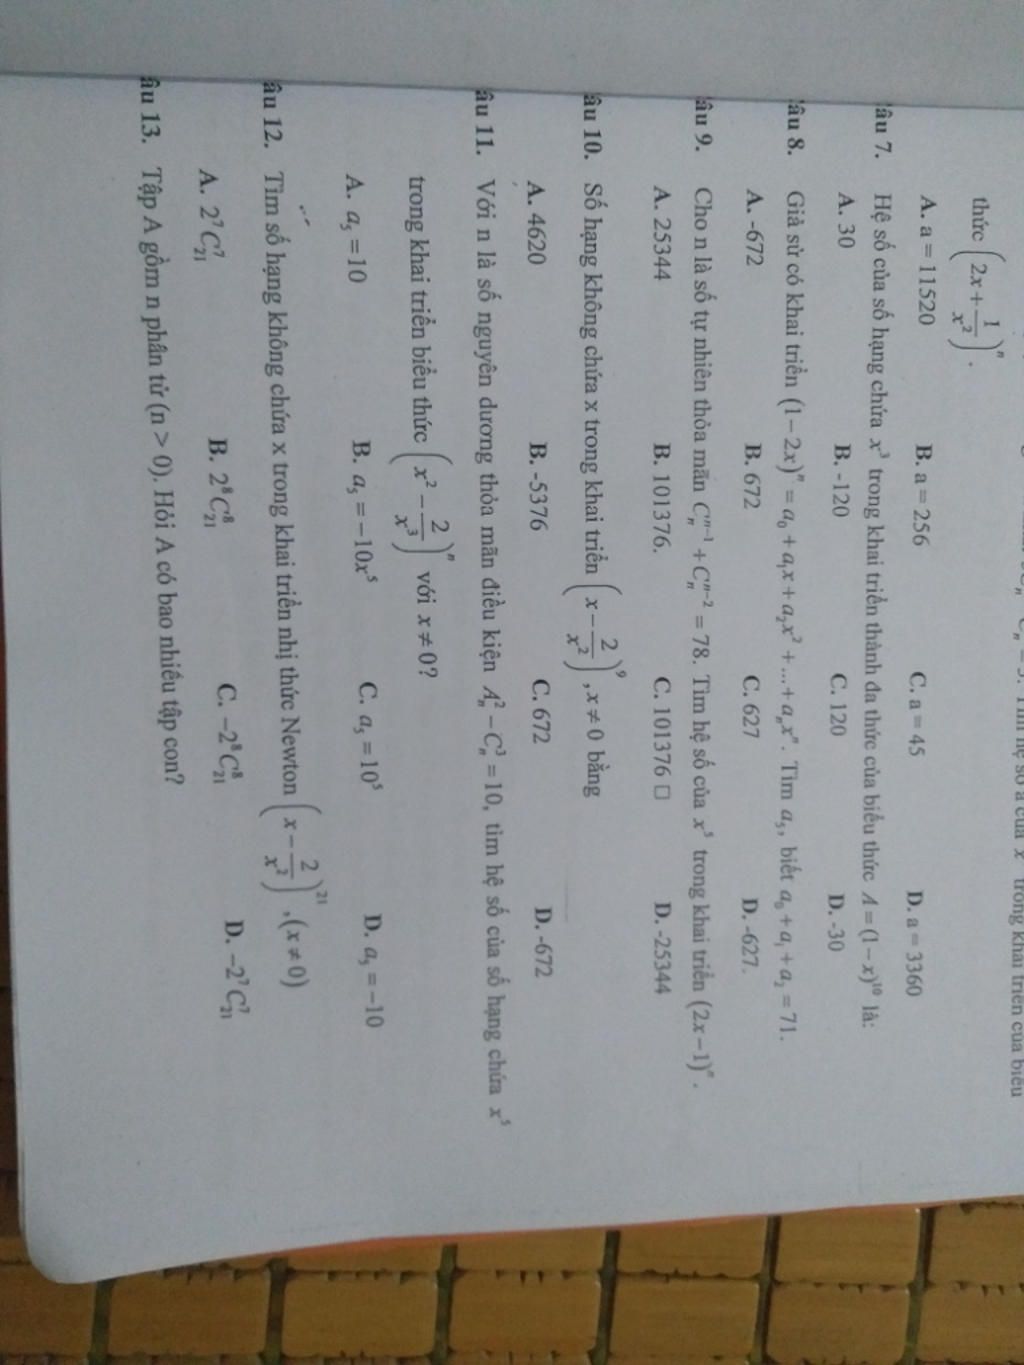 hệ số a của x trong khai triển của biểu
thức (2x + 1/x²)ⁿ.
A. a = 11520 B. a = 256 C. a = 45 D. a = 3360
âu 7. Hệ số của số hạng chứa x³ trong khai triển thành đa thức của biểu thức A = (1 − x)¹⁰ là:
A. 30 B. -120 C. 120 D. -30
âu 8. Giả sử có khai triển (1 − 2x)ⁿ = a₀ + a₁x + a₂x² + ... + aₙxⁿ. Tìm a₅, biết a₀ + a₁ + a₂ = 71.
A. -672 B. 672 C. 627 D. -627.
âu 9. Cho n là số tự nhiên thỏa mãn Cₙⁿ⁻¹ + Cₙⁿ⁻² = 78. Tìm hệ số của x⁵ trong khai triển (2x − 1)ⁿ.
A. 25344 B. 101376. C. 101376 □ D. -25344
âu 10. Số hạng không chứa x trong khai triển (x − 2/x²)⁹, x ≠ 0 bằng
A. 4620 B. -5376 C. 672 D. -672
âu 11. Với n là số nguyên dương thỏa mãn điều kiện Aₙ² − Cₙ³ = 10, tìm hệ số của số hạng chứa x⁵
trong khai triển biểu thức (x² − 2/x³)ⁿ với x ≠ 0?
A. a₅ = 10 B. a₅ = −10x⁵ C. a₅ = 10⁵ D. a₅ = −10
âu 12. Tìm số hạng không chứa x trong khai triển nhị thức Newton (x − 2/x²)²¹, (x ≠ 0)
A. 2⁷C₂₁⁷ B. 2⁸C₂₁⁸ C. −2⁸C₂₁⁸ D. −2⁷C₂₁⁷
âu 13. Tập A gồm n phần tử (n > 0). Hỏi A có bao nhiêu tập con?